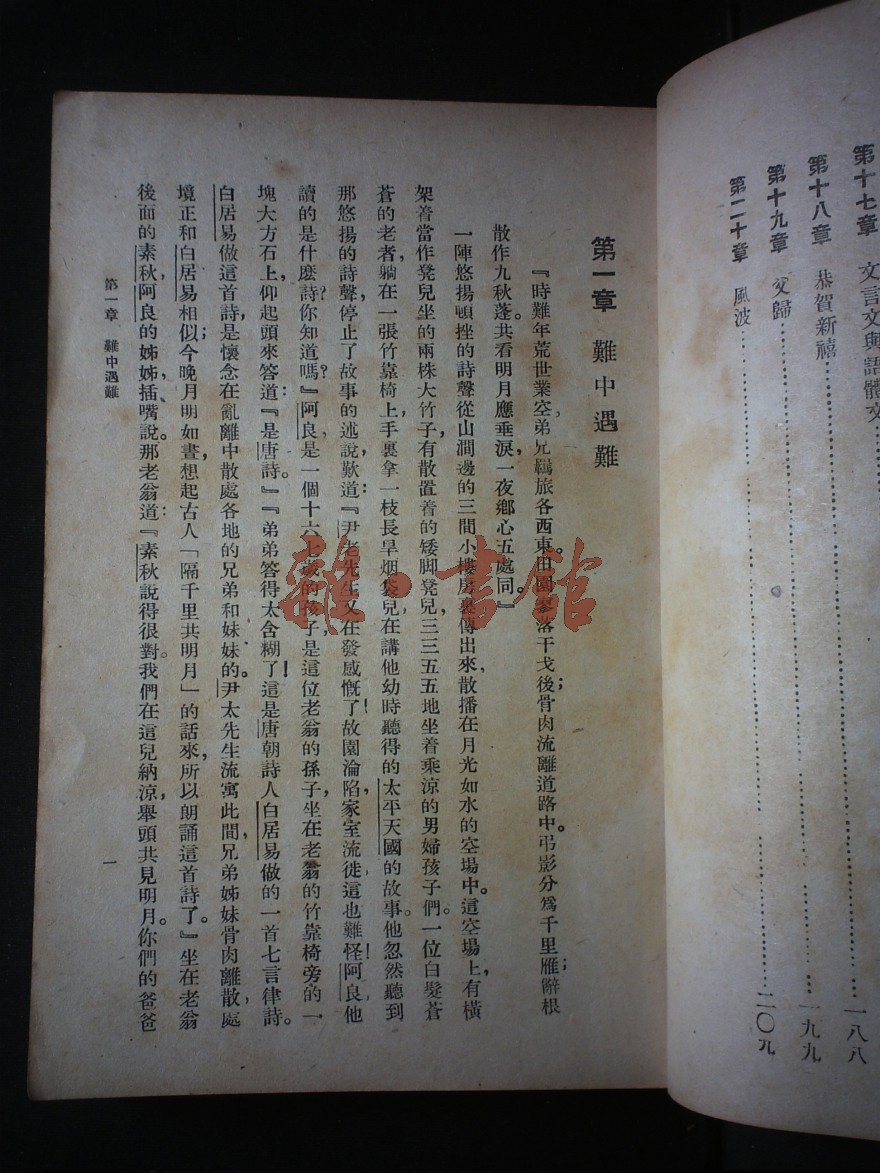 第十七章 文言文與語體文……一八八
第十八章 恭賀新禧……一九九
第十九章 父歸……
第二十章 風波……二〇九
第一章 難中遇難
『時難年荒世業空，弟兄羈旅各西東。田園寥落干戈後，骨肉流離道路中。弔影分爲千里雁；辭根
散作九秋蓬。共看明月應垂淚，一夜鄉心五處同。』
一陣悠揚頓挫的詩聲從山澗邊的三間小樓房裏傳出來，散播在月光如水的空場中。這空場上，有橫
架着當作凳兒坐的兩株大竹子，有散置着的矮脚凳兒，三三五五地坐着乘涼的男婦孩子們。一位白髮蒼
蒼的老者，躺在一張竹靠椅上，手裏拿一枝長旱烟袋兒，在講他幼時聽得的太平天國的故事。他忽然聽到
那悠揚的詩聲，停止了故事的述說，歎道：『尹老先生又在發感慨了！故園淪陷，家室流徙，這也難怪！阿良，他
讀的是什麽詩？你知道嗎？』阿良是一個十六七歲的孩子，是這位老翁的孫子，坐在老翁的竹靠椅旁的一
塊大方石上，仰起頭來答道：『是唐詩。』『弟弟答得太含糊了！這是唐朝詩人白居易做的一首七言律詩。
白居易做這首詩，是懷念在亂離中散處各地的兄弟和妹妹的。尹太先生流寓此間，兄弟姊妹骨肉離散，處
境正和白居易相似；今晚月明如晝，想起古人「隔千里共明月」的話來，所以朗誦這首詩了。』坐在老翁
後面的素秋，阿良的姊姊，插嘴說。那老翁道：『素秋說得很對。我們在這兒納涼，舉頭共見明月。你們的爸爸
第一章 難中遇難
一
雜·書館